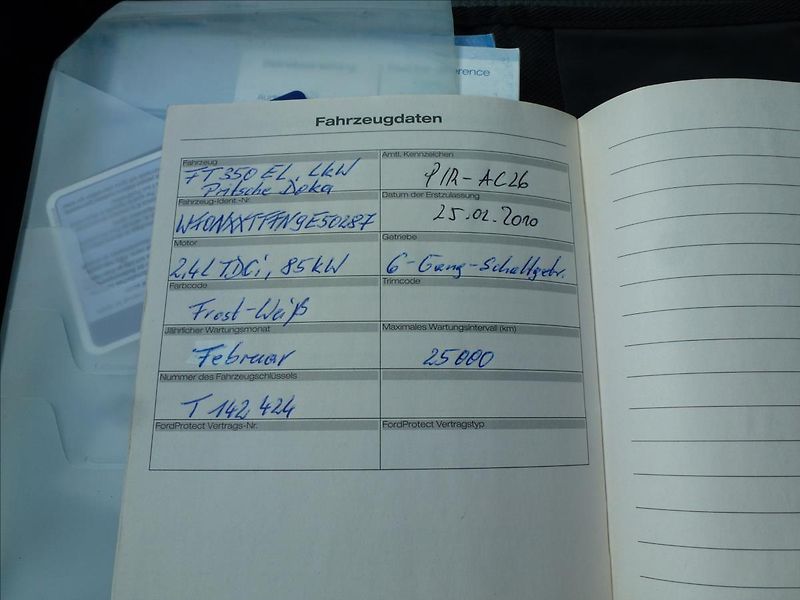 erence
Fahrzeugdaten
Fahrzeug
FT 350 EL, LKW
Pritsche Doka
Amtl. Kennzeichen
PIR-AC26
Fahrzeug-Ident.-Nr.
WF0NXXTTFN9E50287
Datum der Erstzulassung
25.02.2010
Motor
2,4L TDCi, 85 kW
Getriebe
6-Gang-Schaltgetr.
Farbcode
Frost-Weiß
Trimcode
Jährlicher Wartungsmonat
Februar
Maximales Wartungsintervall (km)
25000
Nummer des Fahrzeugschlüssels
T 142424
FordProtect Vertrags-Nr.
FordProtect Vertragstyp